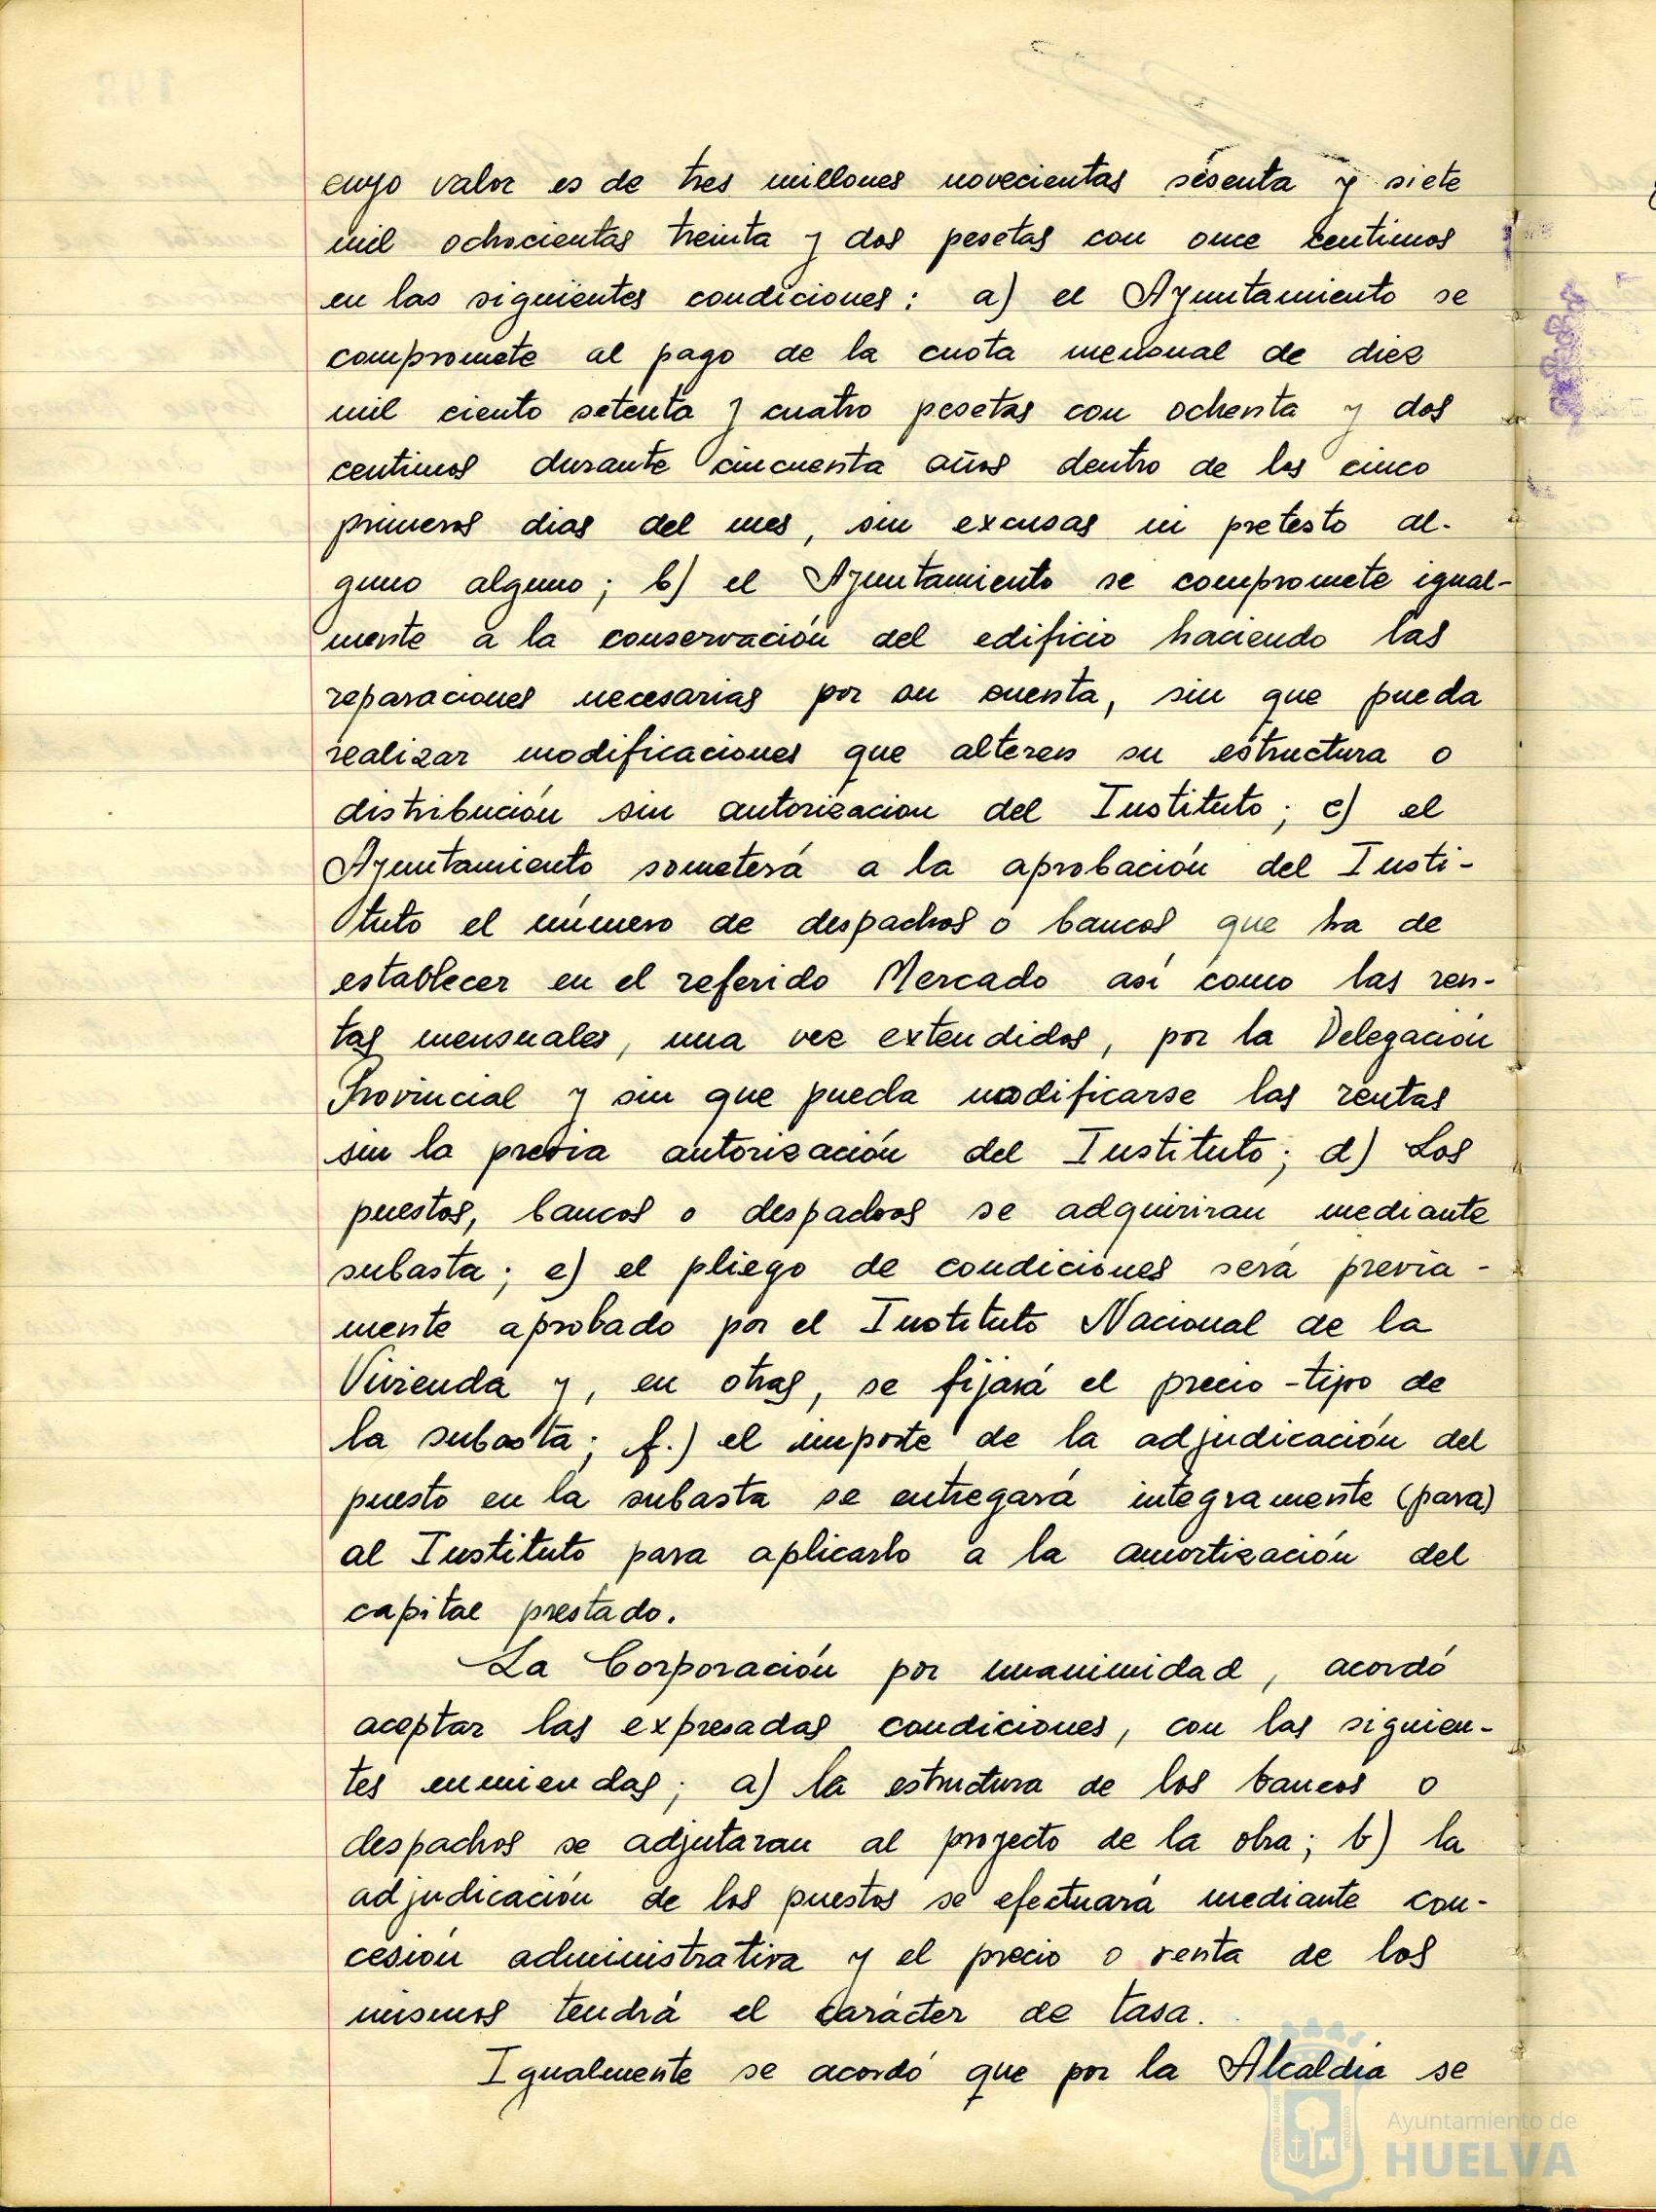 cuyo valor es de tres millones novecientas sesenta y siete
mil ochocientas treinta y dos pesetas con once centimos
en las siguientes condiciones: a) el Ayuntamiento se
compromete al pago de la cuota mensual de diez
mil ciento setenta y cuatro pesetas con ochenta y dos
centimos durante cincuenta años dentro de los cinco
primeros dias del mes, sin excusas ni pretesto al-
guno alguno; b) el Ayuntamiento se compromete igual-
mente a la conservación del edificio haciendo las
reparaciones necesarias por su cuenta, sin que pueda
realizar modificaciones que alteren su estructura o
distribución sin autorizacion del Instituto; c) el
Ayuntamiento someterá a la aprobación del Insti-
tuto el número de despachos o bancos que ha de
establecer en el referido Mercado así como las ren-
tas mensuales, una vez extendidos, por la Delegación
Provincial y sin que pueda modificarse las rentas
sin la previa autorización del Instituto; d) Los
puestos, bancos o despachos se adquiriran mediante
subasta; e) el pliego de condiciones será previa-
mente aprobado por el Instituto Nacional de la
Vivienda y, en otras, se fijará el precio-tipo de
la subasta; f.) el importe de la adjudicación del
puesto en la subasta se entregará integramente (para)
al Instituto para aplicarlo a la amortización del
capital prestado.
La Corporación por unanimidad, acordó
aceptar las expresadas condiciones, con las siguien-
tes enmiendas; a) la estructura de los bancos o
despachos se adjutaran al proyecto de la obra; b) la
adjudicación de los puestos se efectuará mediante con-
cesión administrativa y el precio o renta de los
mismos tendrá el carácter de tasa.
Igualmente se acordó que por la Alcaldia se
Ayuntamiento de
HUELVA